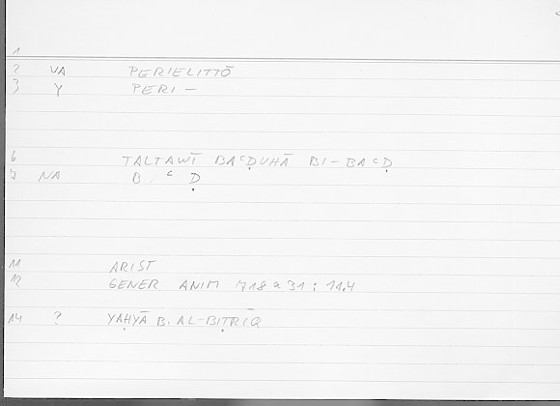 1
2 VA PERIELITTŌ
3 Y PERI –
6 TALTAWĪ BAʿḌUHĀ BI-BAʿḌ
7 NA B ʿ Ḍ
11 ARIST
12 GENER ANIM 718 a 31 : 11.4
14 ? YAḤYĀ B. AL-BIṬRĪQ